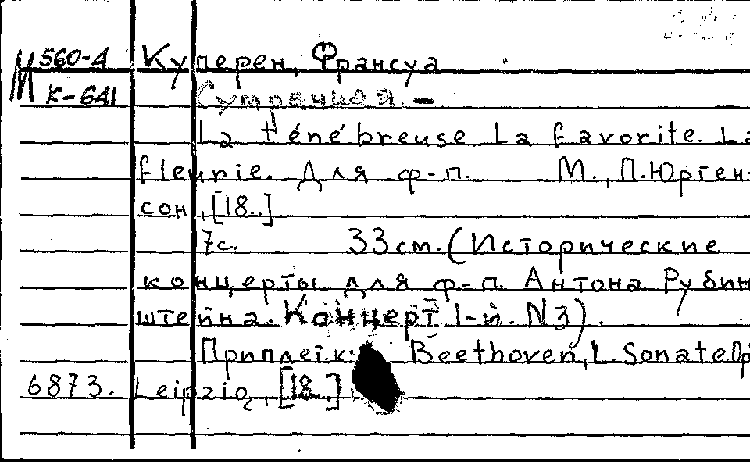 М 560-4 Куперен, Франсуа
К-641
Сумрачная.-
La ténébreuse. La favorite. La
fleurie. Для ф-п. М., П.Юрген-
сон, [18..]
7с. 33см. (Исторические
концерты для ф-п. Антона Рубин
штейна. Концерт 1-й. N3).
Приплетк: Beethoven, L. Sonate Op
6873. Leipzig, [18..]